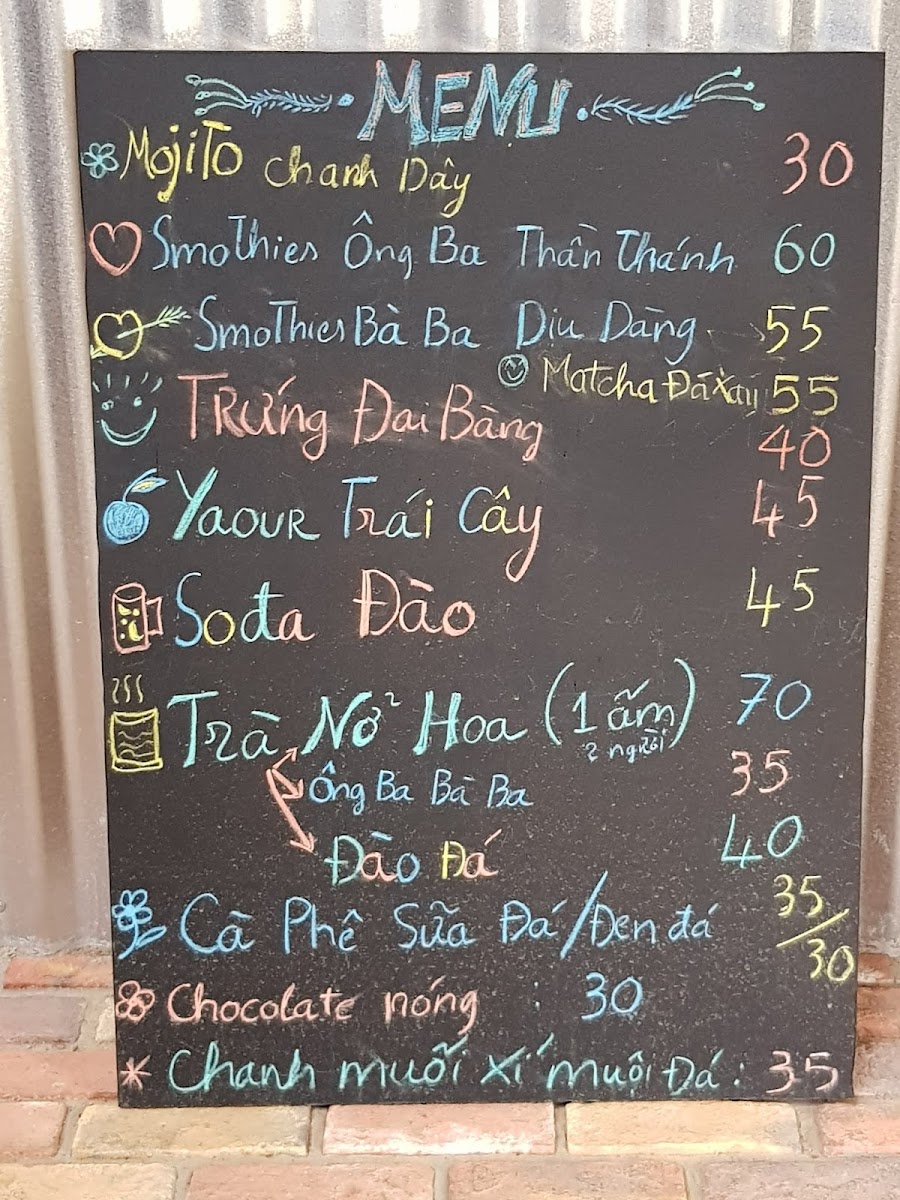 MENU
MojiTo Chanh Dây 30
SmoThies Ông Ba Thần Thánh 60
SmoThies Bà Ba Dịu Dàng 55
Matcha Đá Xay 55
Trứng Đại Bàng 40
Yaour Trái Cây 45
Sođa Đào 45
Trà Nở Hoa (1 ấm) 70
2 người
Ông Ba Bà Ba 35
Đào Đá 40
Cà Phê Sữa Đá/Đen đá 35/30
Chocolate nóng : 30
Chanh muối xí muội Đá : 35